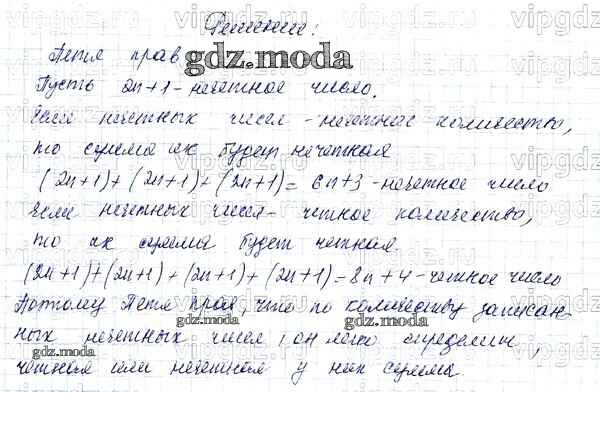 Решение:
Петя прав
gdz.moda
Пусть 2n+1 - нечетное число.
Если нечетных чисел - нечетное количество,
то сумма их будет нечетная
(2n+1)+(2n+1)+(2n+1)=6n+3 - нечетное число
Если нечетных чисел - четное количество,
то их сумма будет четная.
(2n+1)+(2n+1)+(2n+1)+(2n+1)=8n+4 - четное число
Поэтому Петя прав, что по количеству записан-
gdz.moda gdz.moda
ных нечетных чисел, он легко определит,
gdz.moda
четная или нечетная у них сумма.
gdz.moda